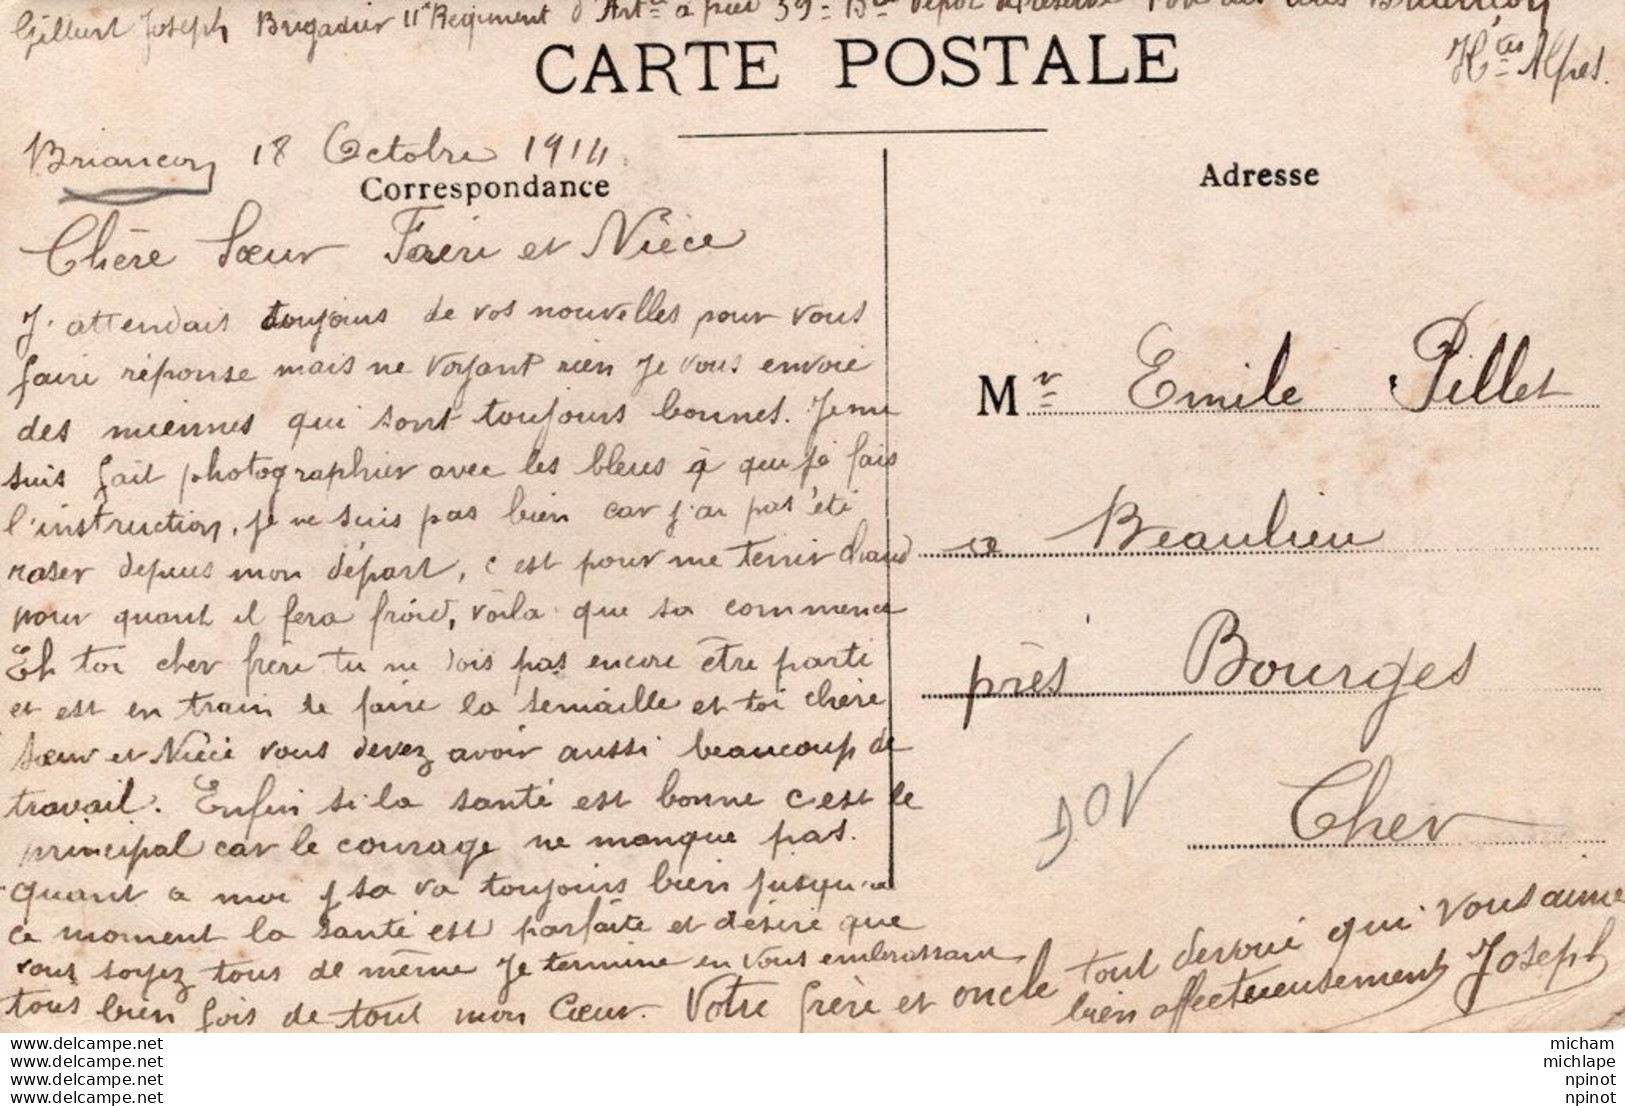 Gilbert Joseph Brigadier 11e Regiment d'Artie à pied 39e Bie Dépot Briançon
Htes Alpes.
CARTE POSTALE
Briancon 18 Octobre 1914
Correspondance
Adresse
Chère Sœur Frère et Nièce
J'attendais toujours de vos nouvelles pour vous
faire réponse mais ne voyant rien Je vous envoie
des miennes qui sont toujours bonnes. Je me
suis fait photographier avec les bleus à que je fais
l'instruction, je ne suis pas bien car j'ai pas été
raser depuis mon départ, c'est pour me tenir chaud
pour quant il fera froid, voila que sa commence
Eh toi cher frère tu ne dois pas encore être parti
et est en train de faire la semaille et toi chère
sœur et Nièce vous devez avoir aussi beaucoup de
travail. Enfin si la santé est bonne c'est le
principal car le courage ne manque pas.
Quant a moi sa va toujours bien jusqu'a
ce moment la santé est parfaite et désire que
vous soyez tous de même Je termine en vous embrassant
tous bien fois de tout mon Cœur. Votre frère et oncle tout devoué qui vous aime
bien affectueusement Joseph
Mr Emile Pillet
a Beaulieu
près Bourges
Cher
DOV
www.delcampe.net
www.delcampe.net
www.delcampe.net
www.delcampe.net
micham
michlape
npinot
npinot